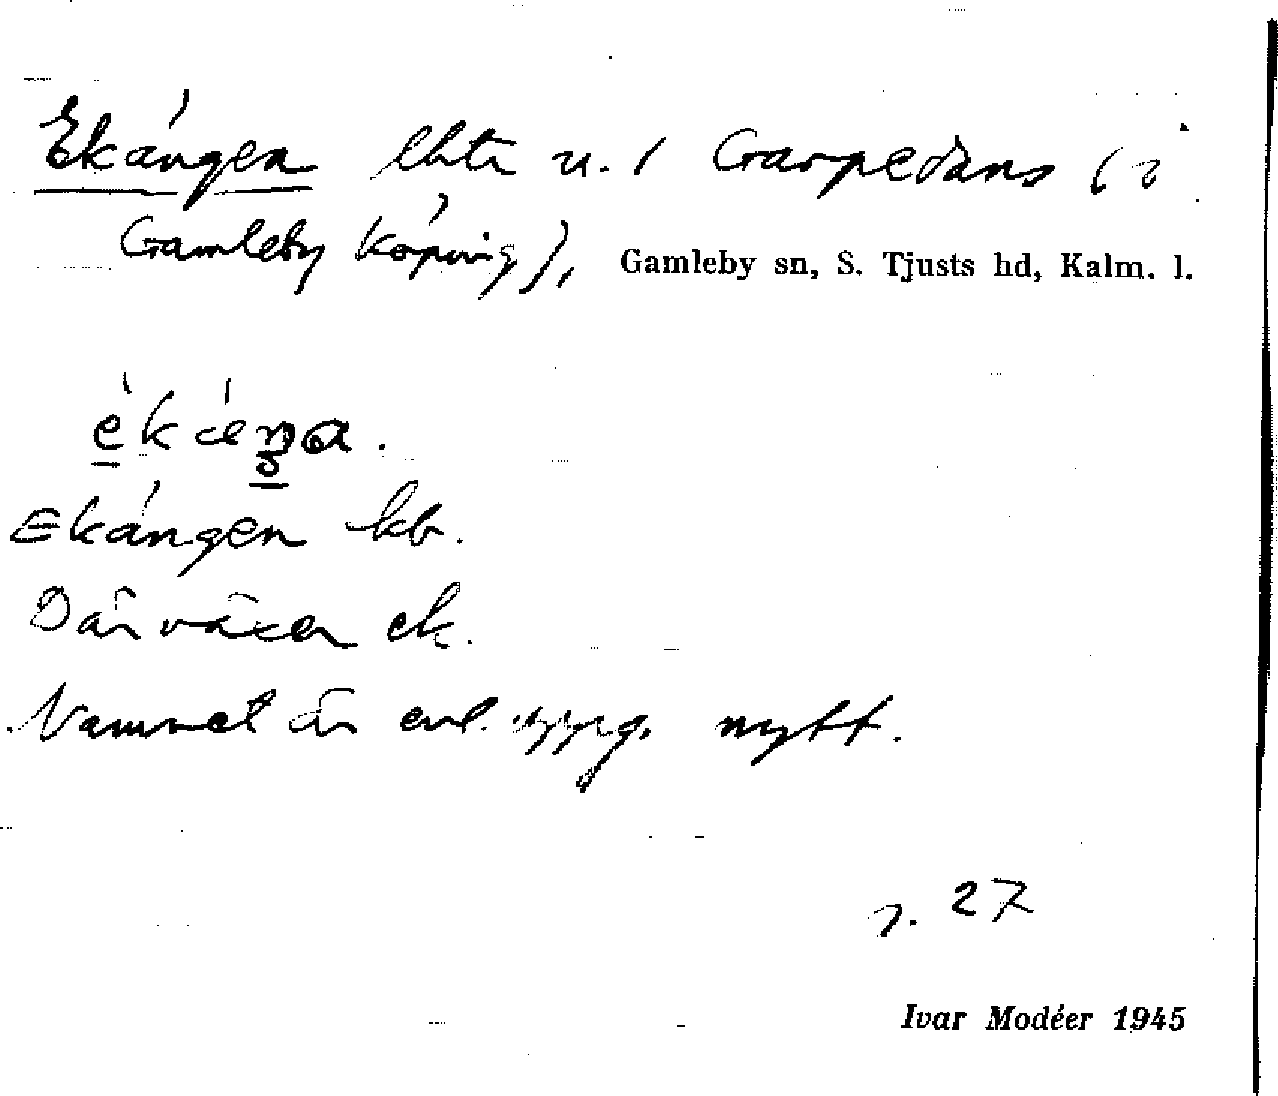 Ekängen lhtr u. 1 Garpedans (i
Gamleby köping), Gamleby sn, S. Tjusts hd, Kalm. l.
Ekängen kb.
Där växer ek.
Namnet är enl. uppg. nytt.
27
Ivar Modéer 1945